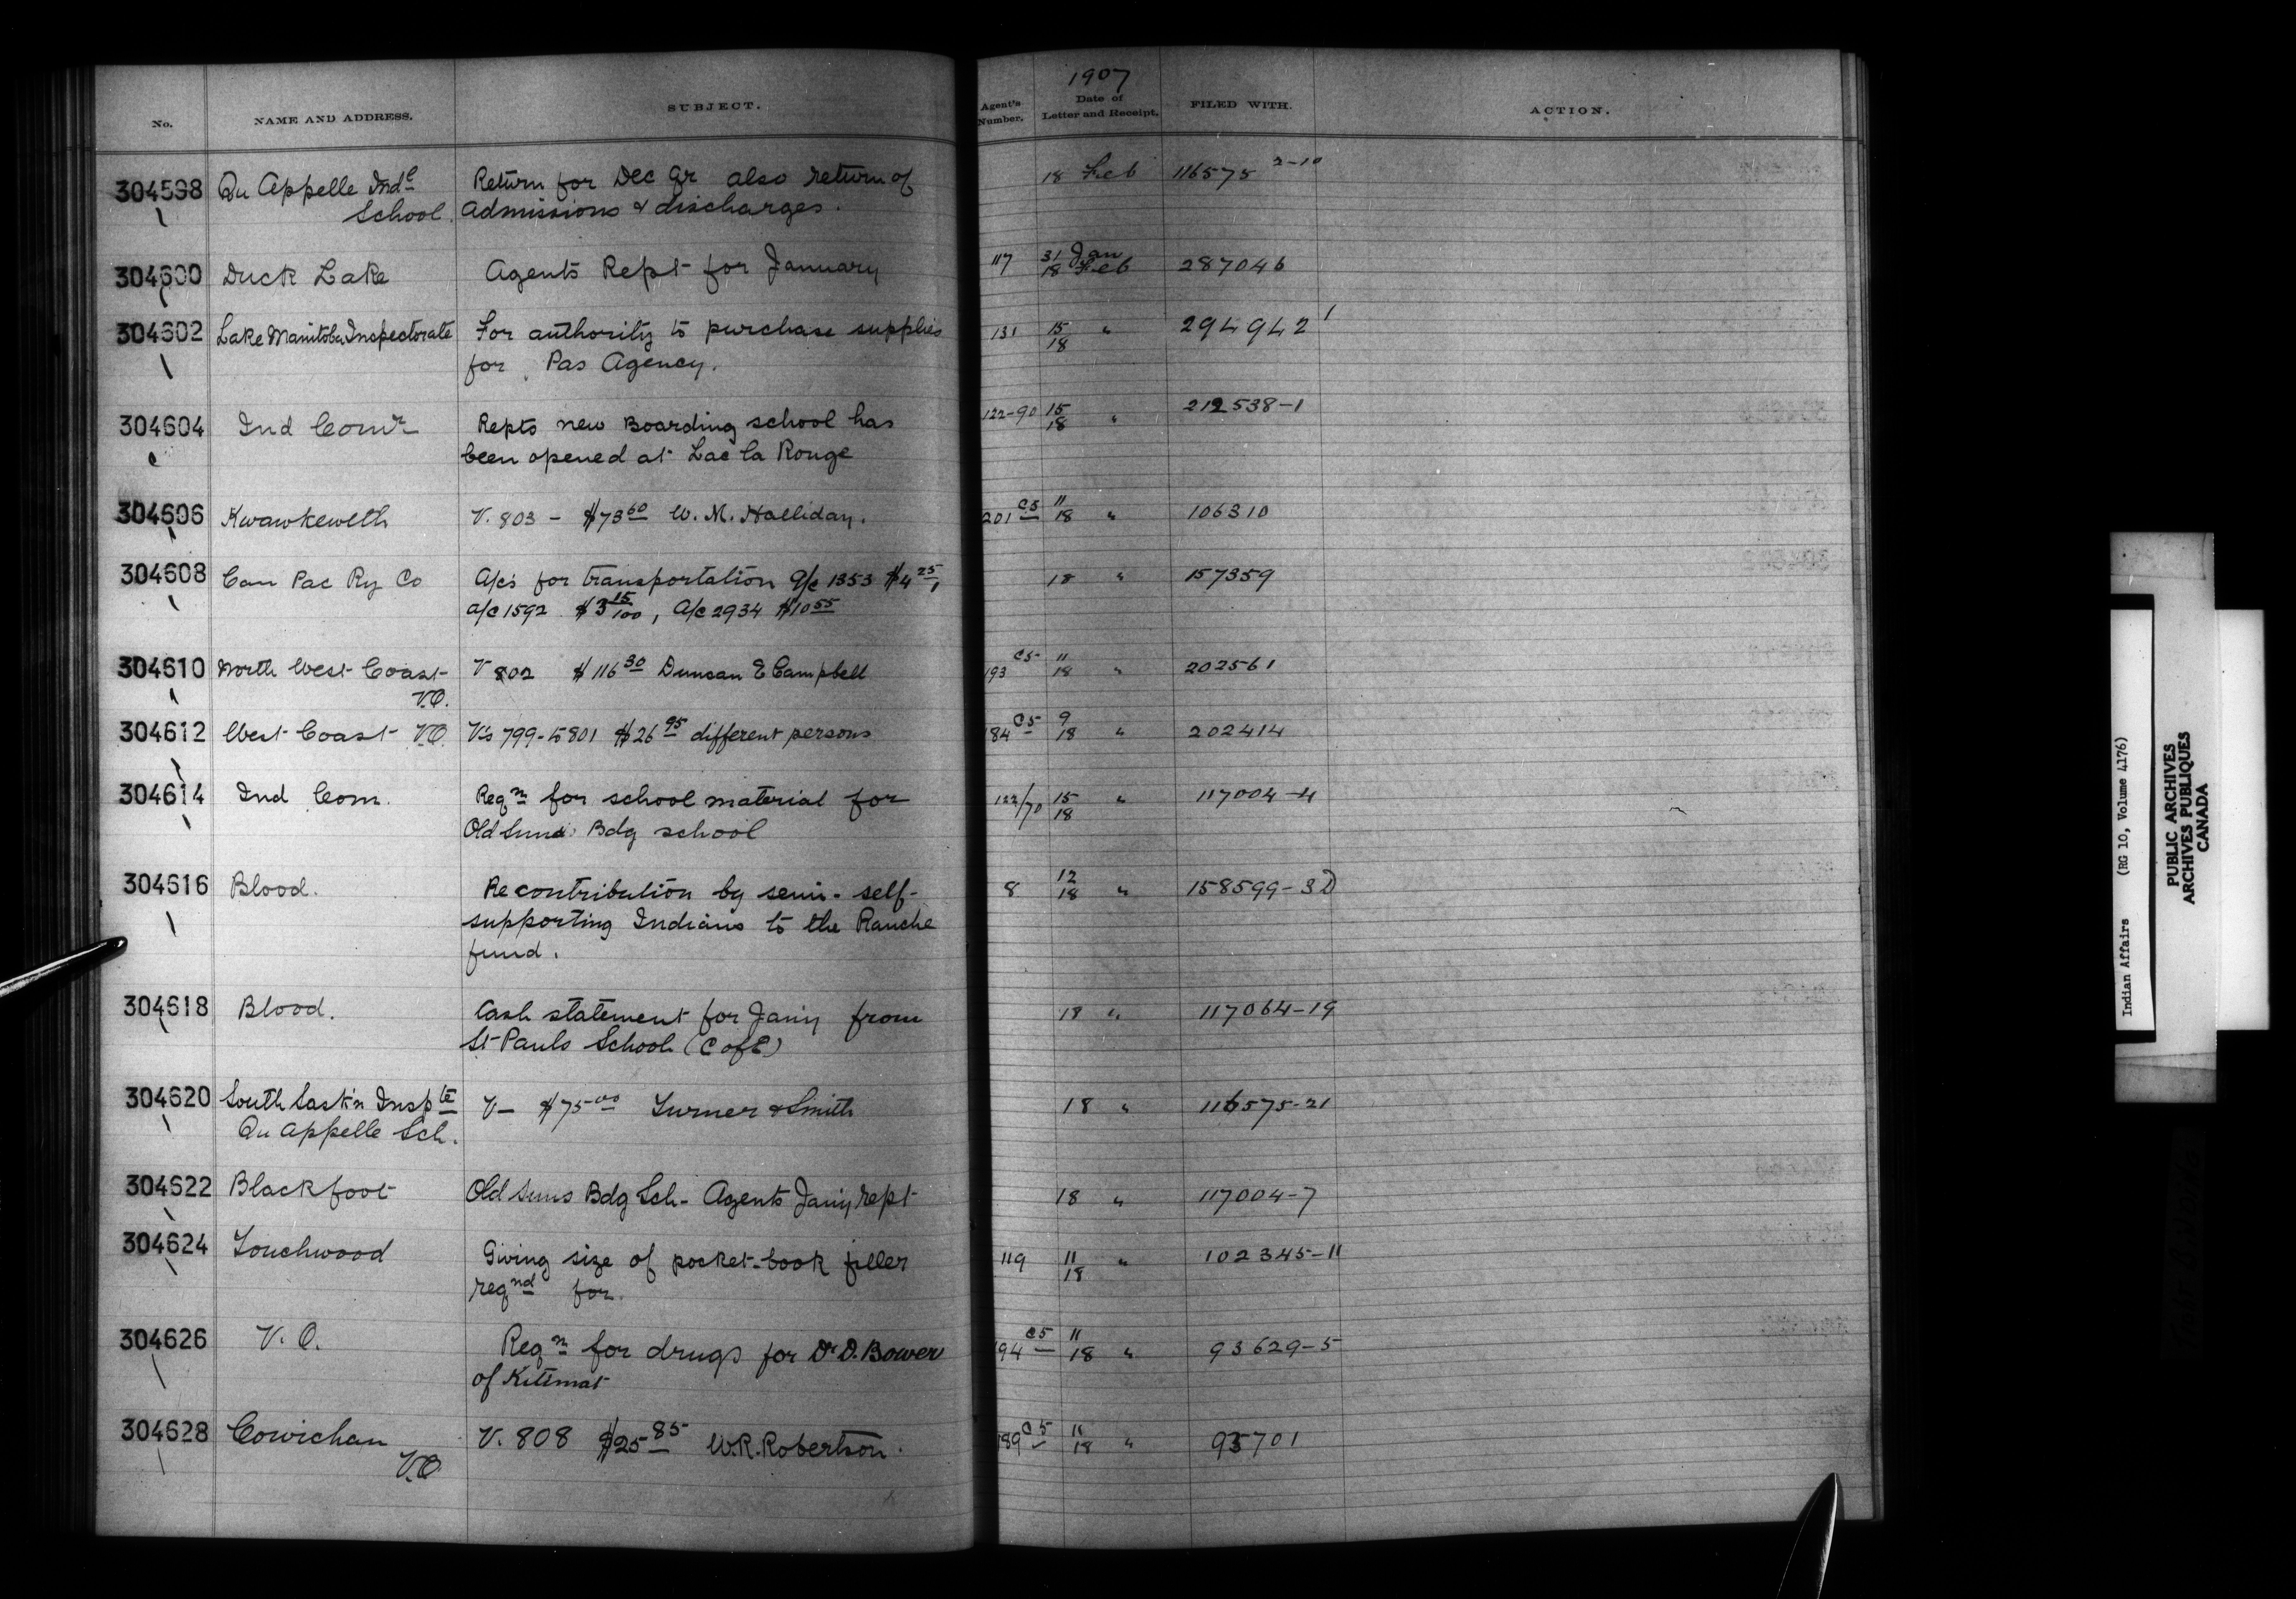 No.
NAME AND ADDRESS.
SUBJECT.
Agent's Number.
1907
Date of
Letter and Receipt.
FILED WITH.
ACTION.
304598 Qu Appelle Indl Return for Dec Qr also return of 18 Feb 116575 2-10
School. admissions & discharges.
304600 Duck Lake Agents Rept for January 117 31 Jan 287046
18 Feb
304602 Lake Manitoba Inspectorate For authority to purchase supplies 131 15 " 294942 1
for Pas Agency. 18
304604 Ind Comr Repts new Boarding school has 122-90 15 212538-1
been opened at Lac la Ronge 18 "
304606 Kwawkewlth V. 803 - $73 60 W. M. Halliday. 201 C5 11 106310
18 "
304608 Can Pac Ry Co A/cs for transportation a/c 1353 $4 25, 18 " 157359
a/c 1592 $3 15/100, A/c 2934 $10 55
304610 North West Coast V 802 $116 30 Duncan E Campbell 193 C5 11 202561
V.O. 18 "
304612 West Coast V.O. V's 799 to 801 $26 95 different persons 184 C5 9 202414
18 "
304614 Ind Com. Reqn for school material for 122/70 15 " 117004-4
Old Suns Bdg school 18
304616 Blood. Re contribution by semi-self- 8 12 158599-3D
supporting Indians to the Ranche 18 "
fund.
304618 Blood. Cash statement for Jany from 18 " 117064-19
St Pauls School (C of E)
304620 South Sask'n Inspte V- $75 00 Turner & Smith 18 " 116575-21
Qu Appelle Sch.
304622 Blackfoot Old Suns Bdg Sch- Agents Jany rept 18 " 117004-7
304624 Touchwood Giving size of pocket-book filler 119 11 " 102345-11
reqnd for. 18
304626 V.O. Reqn for drugs for Dr D. Bower 194 C5 11 93629-5
of Kitimat 18 "
304628 Cowichan V. 808 $25 85 W.R. Robertson. 189 C5 11 93701
V.O. 18 "
Indian Affairs (RG 10, Volume 4176)
PUBLIC ARCHIVES
ARCHIVES PUBLIQUES
CANADA